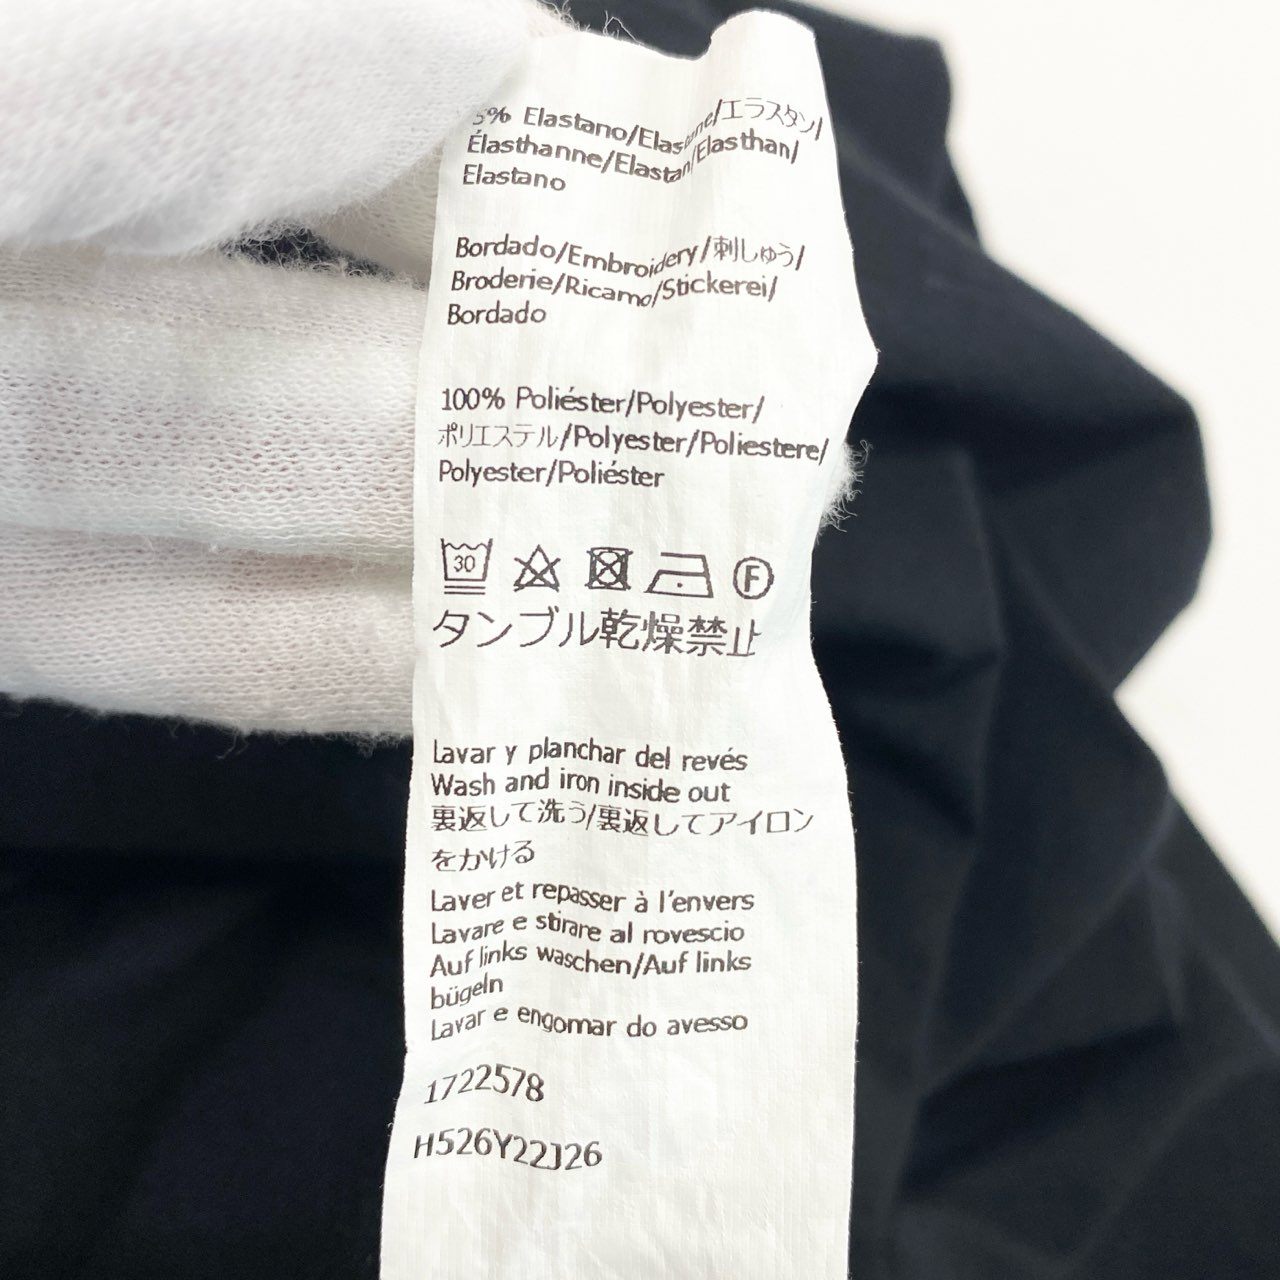 5% Elastano/Elastane/エラスタン/
Élasthanne/Elastan/Elasthan/
Elastano
Bordado/Embroidery/刺しゅう/
Broderie/Ricamo/Stickerei/
Bordado
100% Poliéster/Polyester/
ポリエステル/Polyester/Poliestere/
Polyester/Poliéster
30
F
タンブル乾燥禁止
Lavar y planchar del revés
Wash and iron inside out
裏返して洗う/裏返してアイロン
をかける
Laver et repasser à l'envers
Lavare e stirare al rovescio
Auf links waschen/Auf links
bügeln
Lavar e engomar do avesso
1722578
H526Y22J26